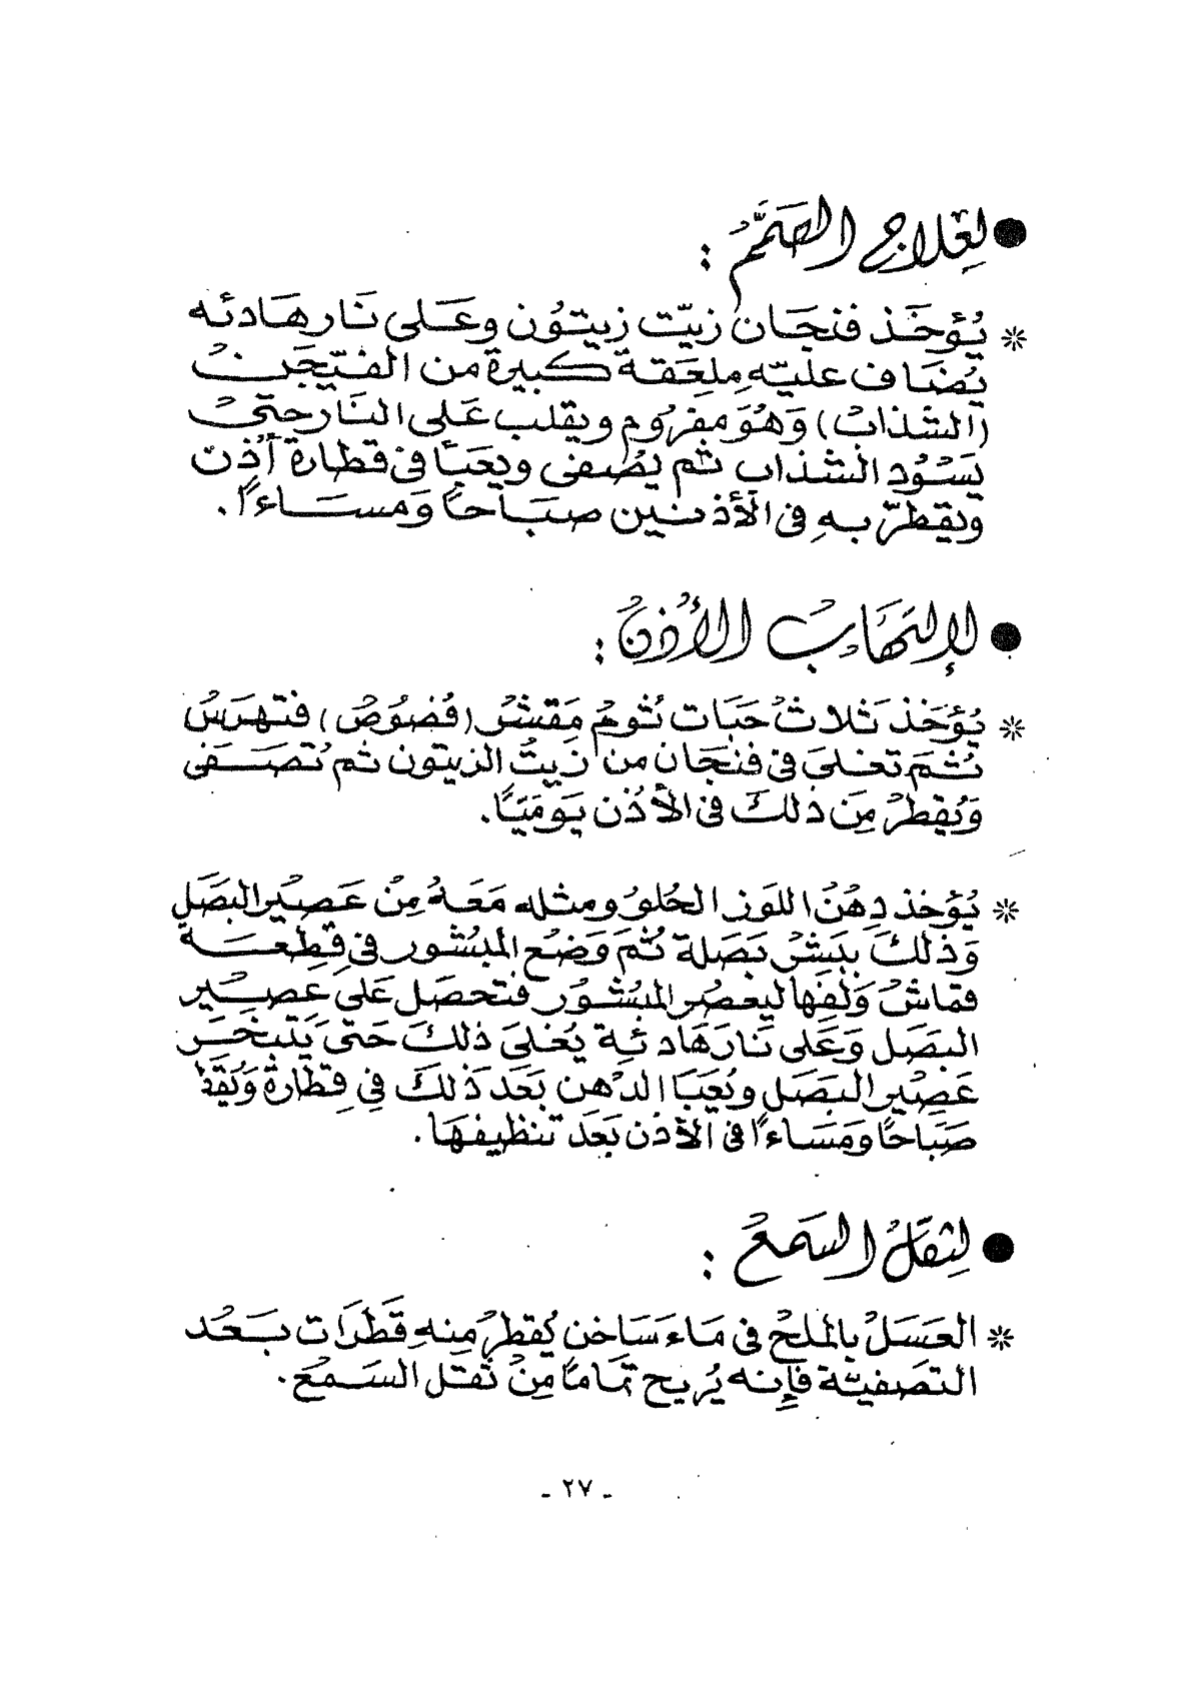 ● لِعِلاج الصَّمَمُ :
* يُؤخَذ فنجَان زيّت زيتوُن وعَلى نَار هَادئه
يُضَاف عليّه مِلعَقة كبيرة من الفيّجَنْ
(الشذابْ) وَهُوَ مفرُوم ويقلب عَلى النَار حتىْ
يَسْوُد الشذاب ثم يصُفى ويعَبأ فىْ قطارة أُذِنْ
ويَقطرّ بهِ فى الأذنين صبَاحًا وَمسَاءًا .
● لإلتهَابْ الأُذنْ :
* يُؤخَذ ثلاثْ حَبَات ثُومُ مَقشرْ (فُصُوصْ) فتهرَسُ
ثُمَ تغلىَ فىْ فنْجَان من زَيتْ الزيتون ثم تُصَفىَ
وَيُقطرْ مِنَ ذلكَ فى الأذُن يَومَيًا.
* يُؤخذ دِهْنُ اللوَز الحُلوُ ومثله مَعَهُ مِنْ عَصِيْر البصَل
وَذلكَ بِبَشرْ بَصَلة ثُمَ وَضْع المبُشور فىِ قِطعَة
قمَاشْ وَلفِها ليعصُر المبُشوُر فتحصَل عَلىَ عَصِيْر
البصَل وَعَلى نَار هَادئِة يُغلىَ ذلكَ حَتىَ يَتَبخَر
عَصِيْر البَصَل ويُعَبَا الدُهن بَعَد ذَلكَ فِى قِطارة وَيُقَط
صَبَاحًا وَمَسَاءًا فى الأذن بَعَدَ تنظيفهَا .
● لِثقلْ السَمعْ :
* العَسَلْ بالملحْ فى مَاء سَاخن يُقطرُ مِنهِ قَطَرَات بَعْد
التصَفيّة فإِنه يُريح تمَامًا مِنْ ثقل السَمْعَ .
- ٢٧ -